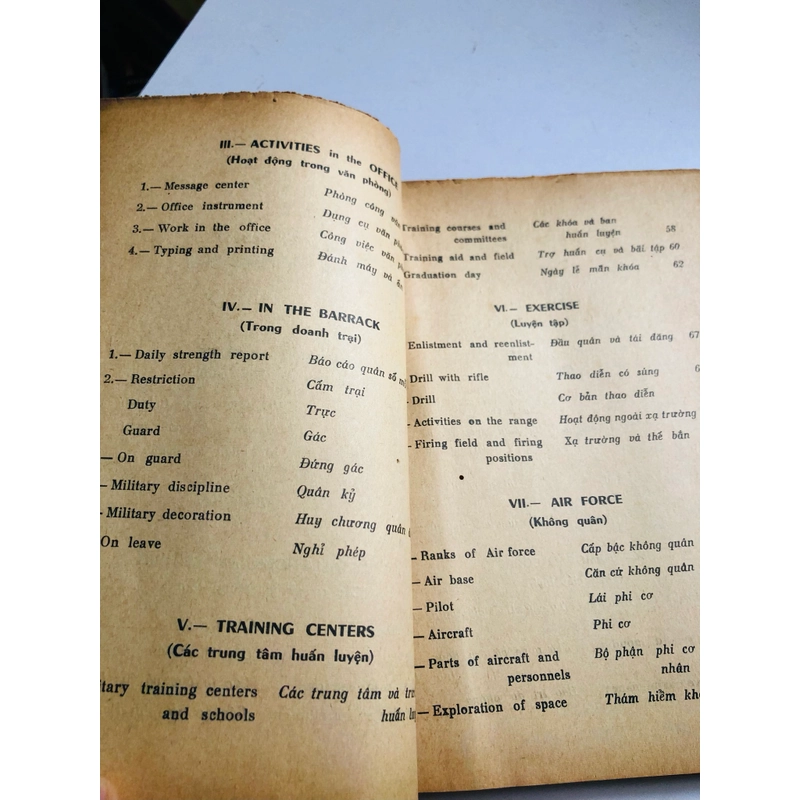 III.— ACTIVITIES in the OFFICE
(Hoạt động trong văn phòng)
1.— Message center Phòng công
2.— Office instrument Dụng cụ văn
3.— Work in the office Công việc văn
4.— Typing and printing Đánh máy và
IV.— IN THE BARRACK
(Trong doanh trại)
1.— Daily strength report Báo cáo quân số
2.— Restriction Cấm trại
Duty Trực
Guard Gác
— On guard Đứng gác
- Military discipline Quân kỷ
- Military decoration Huy chương quân
On leave Nghỉ phép
V.— TRAINING CENTERS
(Các trung tâm huấn luyện)
tary training centers Các trung tâm và
and schools huấn
Training courses and Các khóa và ban
committees huấn luyện 58
Training aid and field Trợ huấn cụ và bãi tập 60
Graduation day Ngày lễ mãn khóa 62
VI.— EXERCISE
(Luyện tập)
Enlistment and reenlist- Đầu quân và tái đăng 67
ment
- Drill with rifle Thao diễn có súng 6
- Drill Cơ bản thao diễn
- Activities on the range Hoạt động ngoài xạ trường
- Firing field and firing Xạ trường và thế bắn
positions
VII.— AIR FORCE
(Không quân)
- Ranks of Air force Cấp bậc không quân
- Air base Căn cứ không quân
- Pilot Lái phi cơ
- Aircraft Phi cơ
- Parts of aircraft and Bộ phận phi cơ
personnels nhân
— Exploration of space Thám hiểm